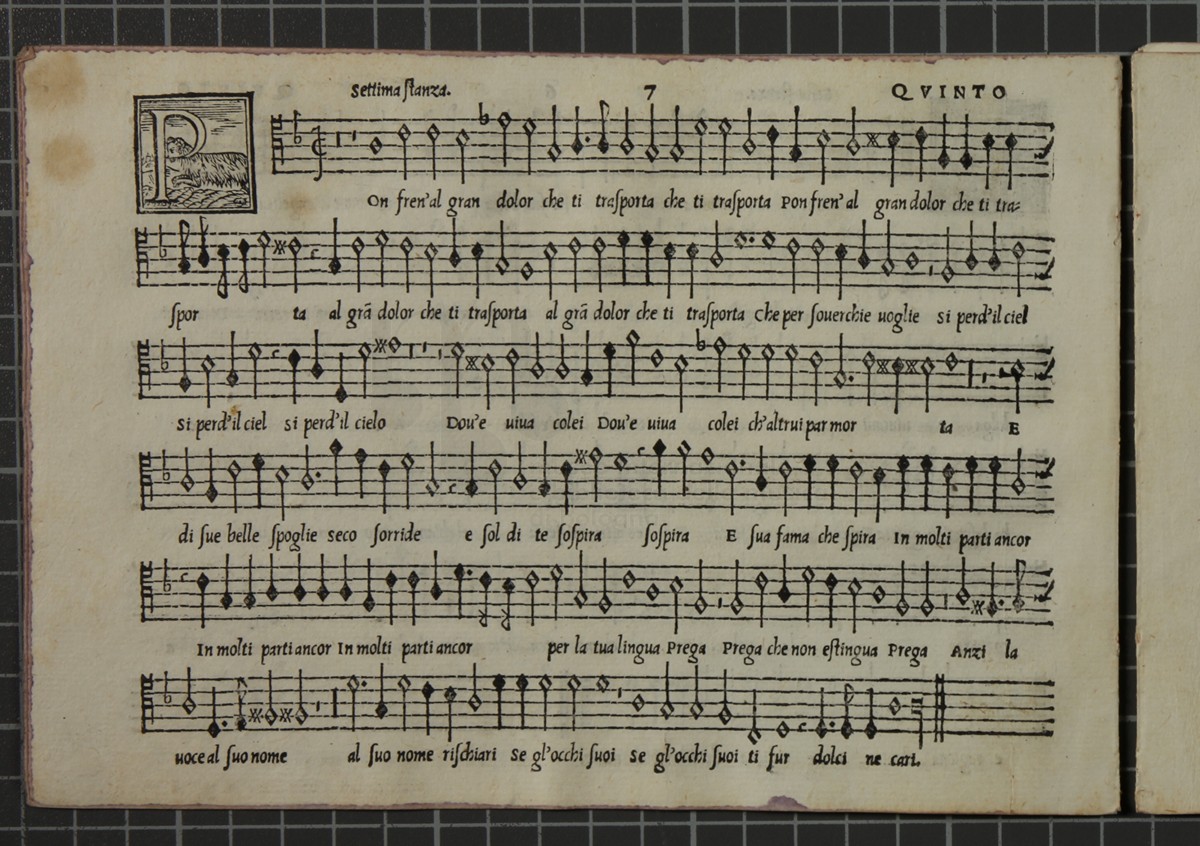 Settima ſtanza. 7 QVINTO
POn fren'al gran dolor che ti traſporta che ti traſporta Pon fren'al gran dolor che ti tra-
ſpor ta al grã dolor che ti traſporta al grã dolor che ti traſporta Che per ſouerchie uoglie si perd'il ciel
Si perd'il ciel si perd'il cielo Dou'e uiua colei Dou'e uiua colei ch'altrui par mor ta E
di ſue belle ſpoglie seco ſorride e ſol di te ſoſpira ſoſpira E ſua fama che ſpira In molti parti ancor
In molti parti ancor In molti parti ancor per la tua lingua Prega Prega che non eſtingua Prega Anzi la
uoce al ſuo nome al ſuo nome riſchiari Se gl'occhi ſuoi Se gl'occhi ſuoi ti fur dolci ne cari.